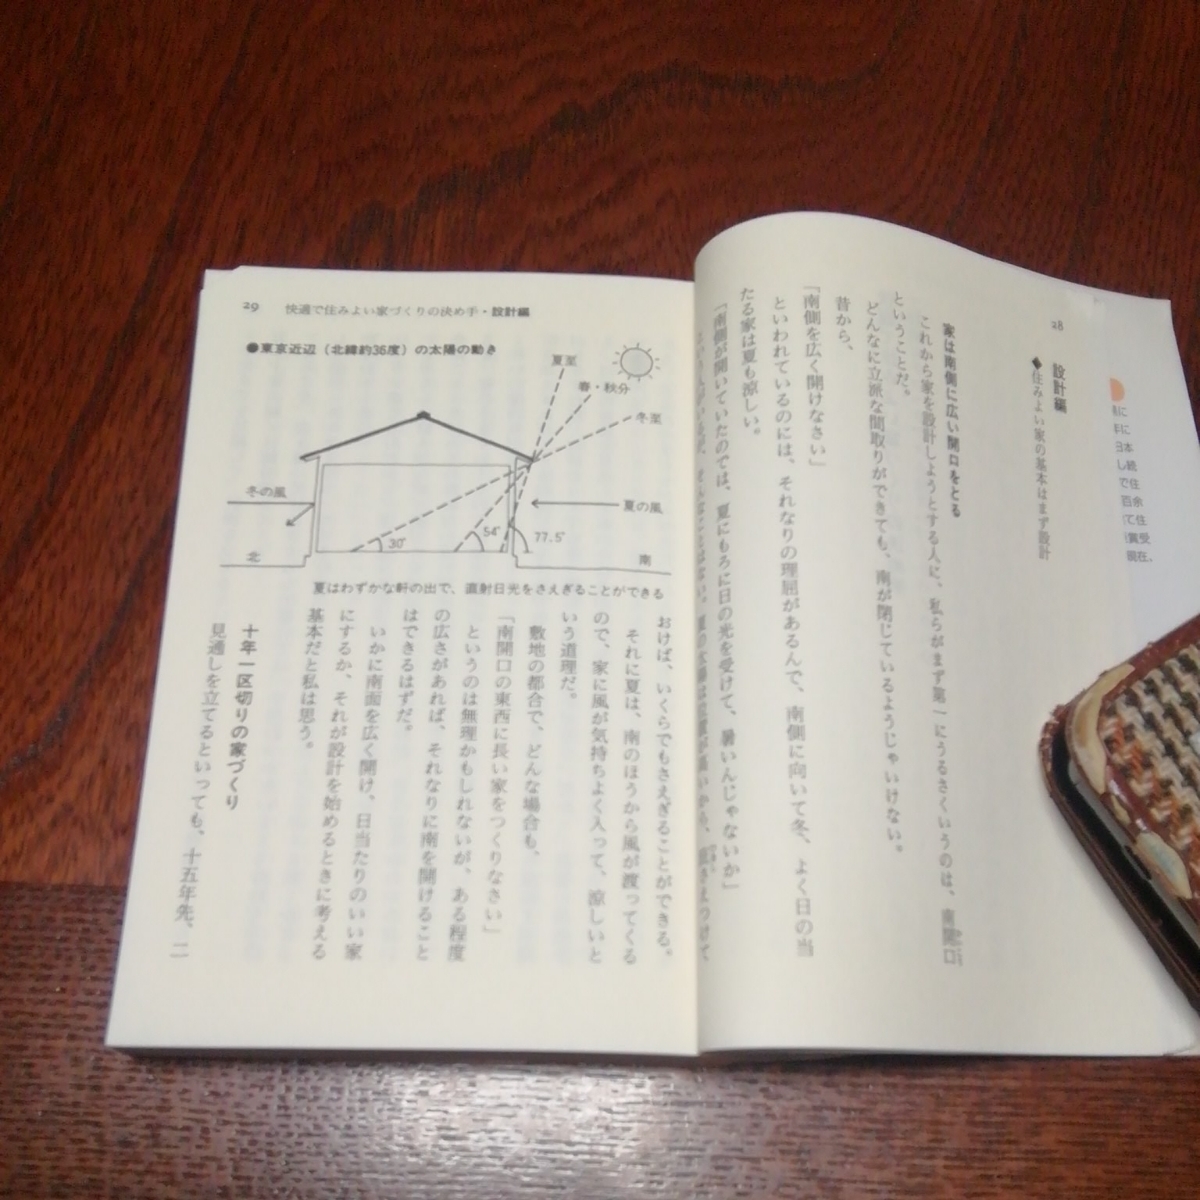 28
設計編
◆住みよい家の基本はまず設計
家は南側に広い開口をとる
これから家を設計しようとする人に、私らがまず第一にうるさくいうのは、南開口
ということだ。
どんなに立派な間取りができても、南が閉じているようじゃいけない。
昔から、
「南側を広く開けなさい」
といわれているのには、それなりの理屈があるんで、南側に向いて冬、よく日の当
たる家は夏も涼しい。
「南側が開いていたのでは、夏にもろに日の光を受けて、暑いんじゃないか」
29 快適で住みよい家づくりの決め手・設計編
●東京近辺(北緯約36度)の太陽の動き
夏至
春・秋分
冬至
冬の風
夏の風
30°
54°
77.5°
北
南
夏はわずかな軒の出で、直射日光をさえぎることができる
おけば、いくらでもさえぎることができる。
それに夏は、南のほうから風が渡ってくる
ので、家に風が気持ちよく入って、涼しいと
いう道理だ。
敷地の都合で、どんな場合も、
「南開口の東西に長い家をつくりなさい」
というのは無理かもしれないが、ある程度
の広さがあれば、それなりに南を開けること
はできるはずだ。
いかに南面を広く開け、日当たりのいい家
にするか、それが設計を始めるときに考える
基本だと私は思う。
十年一区切りの家づくり
見通しを立てるといっても、十五年先、二